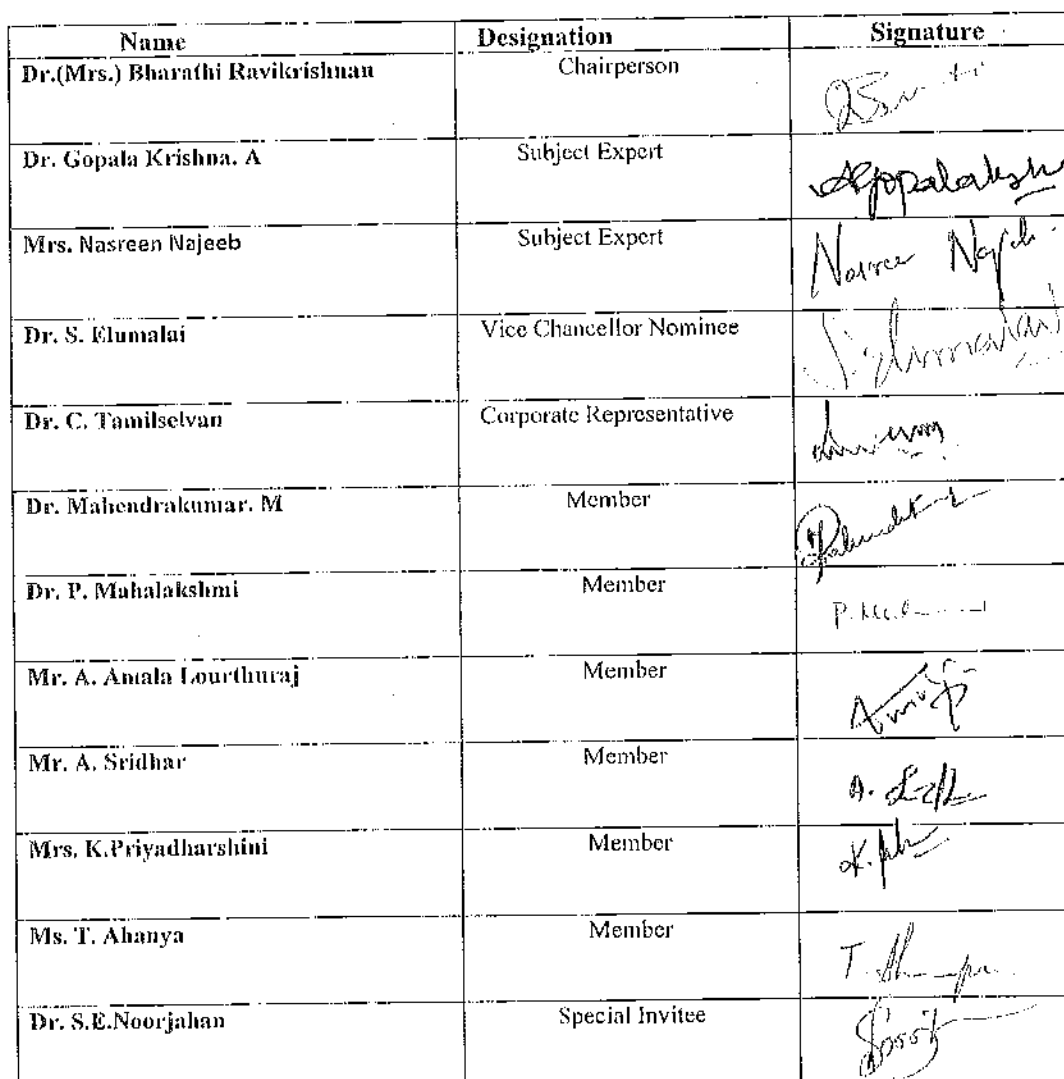 Name Designation Signature
Dr.(Mrs.) Bharathi Ravikrishnan Chairperson
Dr. Gopala Krishna. A Subject Expert Agopalakrishn
Mrs. Nasreen Najeeb Subject Expert Nasreen Najeeb
Dr. S. Elumalai Vice Chancellor Nominee S. Elumalai
Dr. C. Tamilselvan Corporate Representative
Dr. Mahendrakumar. M Member
Dr. P. Mahalakshmi Member P.
Mr. A. Amala Lourthuraj Member
Mr. A. Sridhar Member A.
Mrs. K.Priyadharshini Member K.
Ms. T. Ahanya Member T.
Dr. S.E.Noorjahan Special Invitee